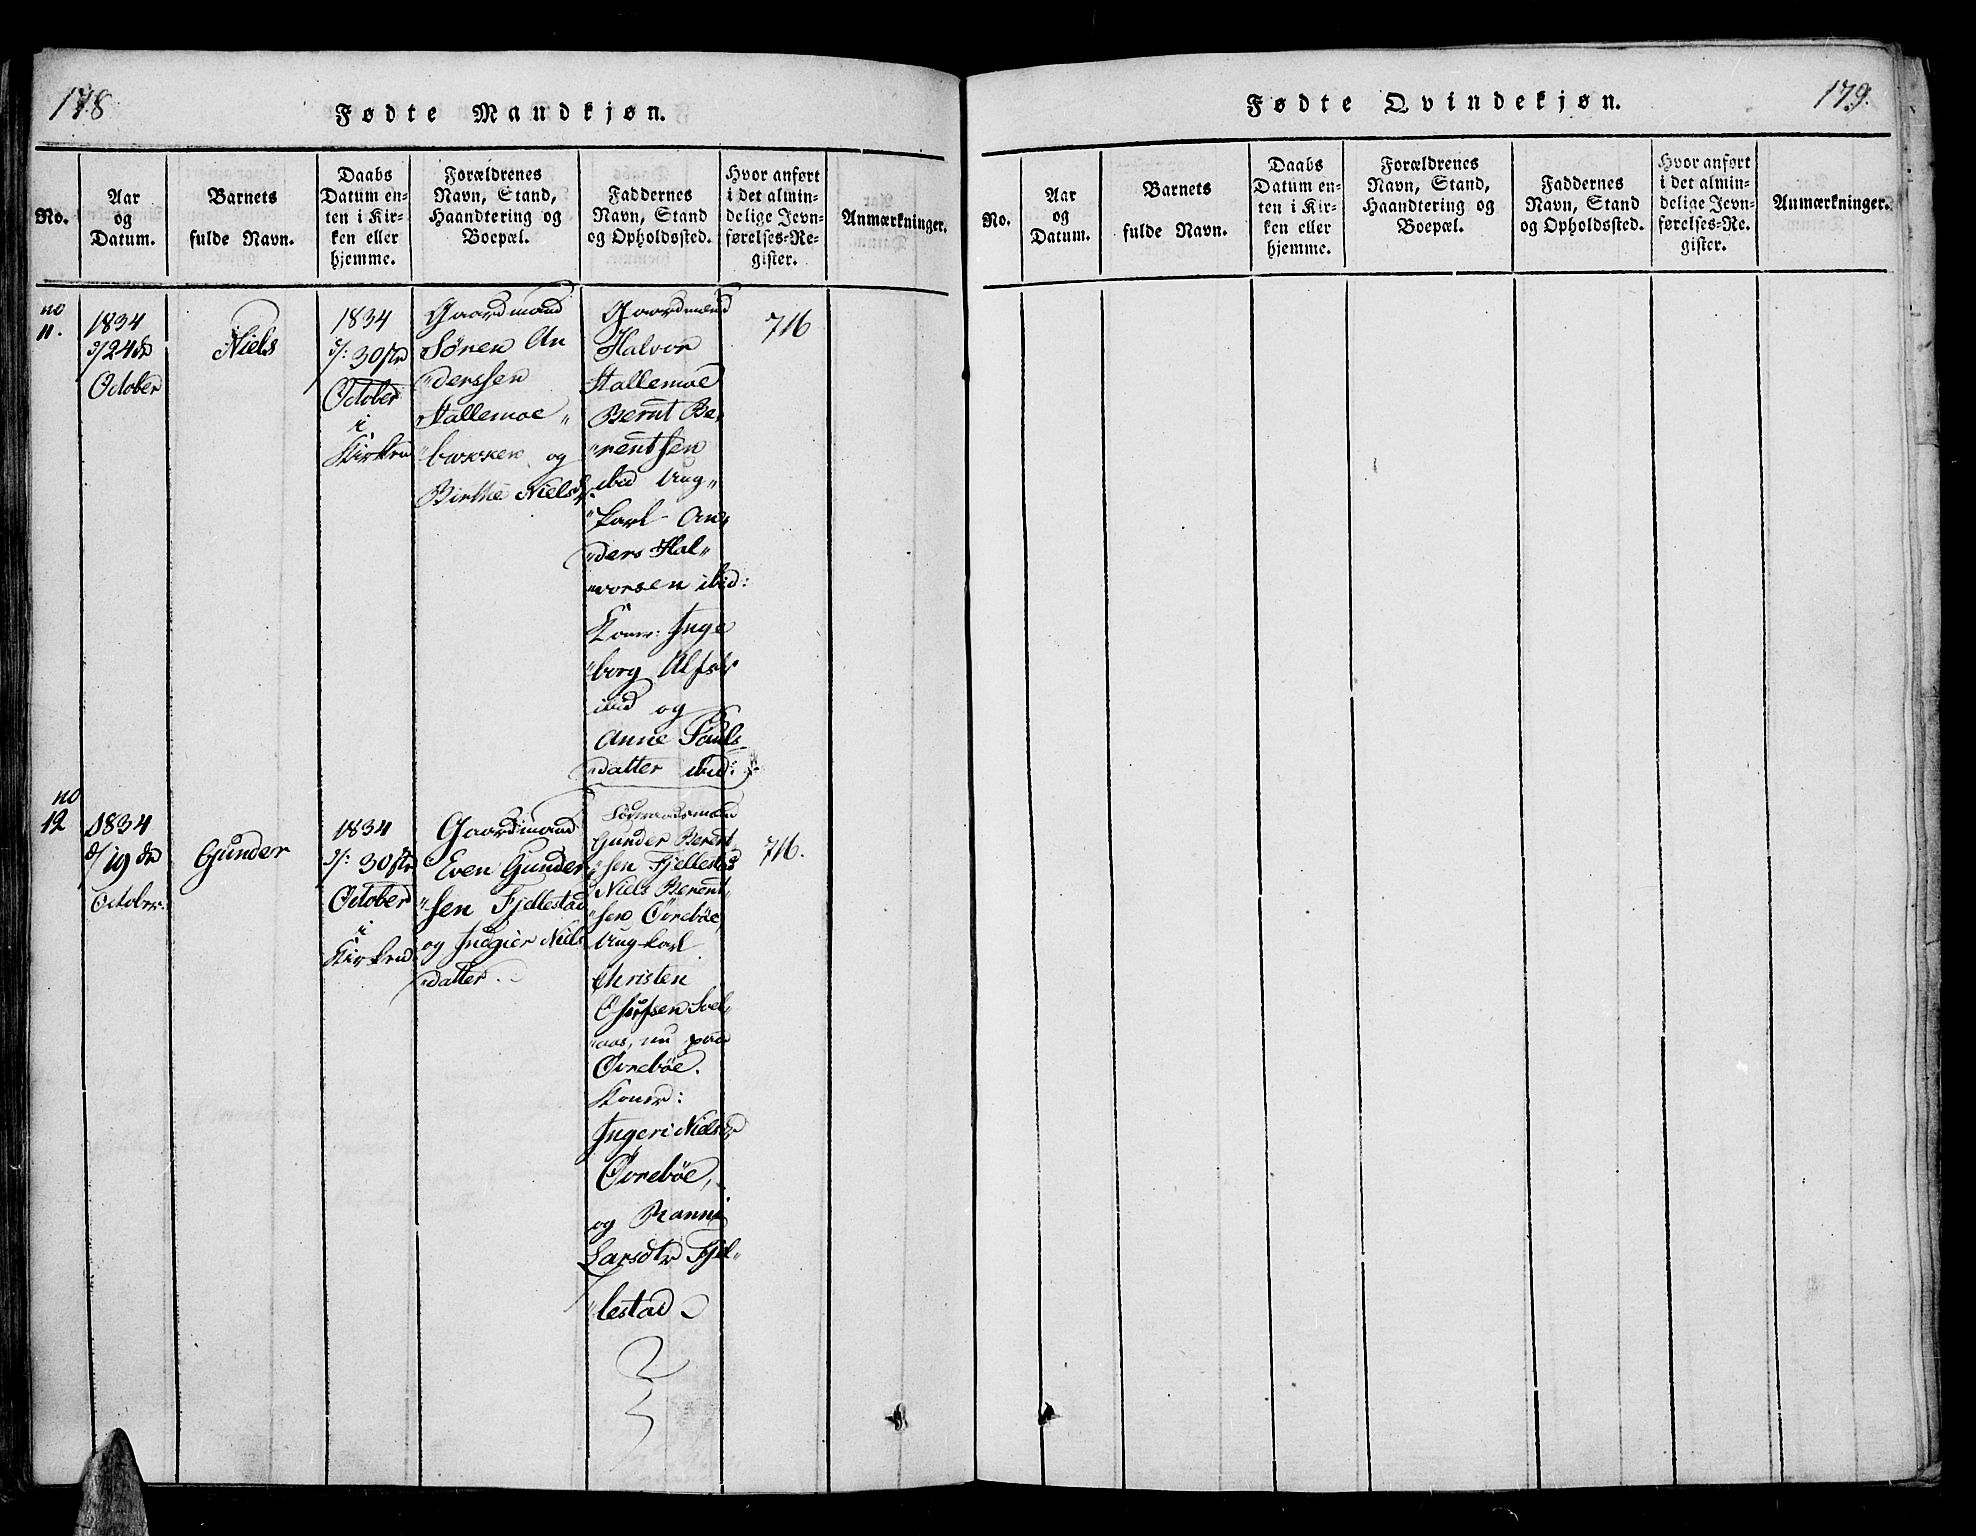 178
Fødte Mandkjøn.
No.
Aar
og
Datum.
Barnets
fulde Navn.
Daabs
Datum en-
ten i Kir-
ken eller
hjemme.
Forældrenes
Navn, Stand,
Haandtering og
Boepæl.
Faddernes
Navn, Stand
og Opholdssted.
Hvor anført
i det almin-
delige Jevn-
førelses-Re-
gister.
Anmærkninger.
no
11.
1834
d/24de
October
Niels
1834
d/: 30te
October
i
Kirken
Gaardmand
Søren An
"derssen
Stallemoe "
"bakken og
Birthe Nielsd
Gaardmænd
Halvor
Stallemoe
Bernt Be,
"rentsen
ibid Ung"
"karl An,
"ders Hal"
"vorsen ibid:
Koner: Inge
"borg Alfsdr
ibid og
Anne Pouls
"datter ibid:
716
no
12
1834
d/19de
October.
Gunder
1834
d/: 30te
October
i
Kirken
Gaardmand
Even Gunder
"sen Fjellestad
og Ingier Niels
"datter.
Gunder Berent
"sen Fjellestad
Niels Berent,
"sen Øvrebøe,
Ungkarl
Christen
"aas, nu paa
Øvrebøe.
Koner:
Ingeri Nielsd
Øvrebøe,
og Ranni
Larsdtr Fjel"
"lestad
716.
179.
Fødte Qvindekjøn.
No.
Aar
og
Datum.
Barnets
fulde Navn.
Daabs
Datum en-
ten i Kir-
ken eller
hjemme.
Forældrenes
Navn, Stand,
Haandtering og
Boepæl.
Faddernes
Navn, Stand
og Opholdssted.
Hvor anført
i det almin-
delige Jevn-
førelses-Re-
gister.
Anmærkninger.